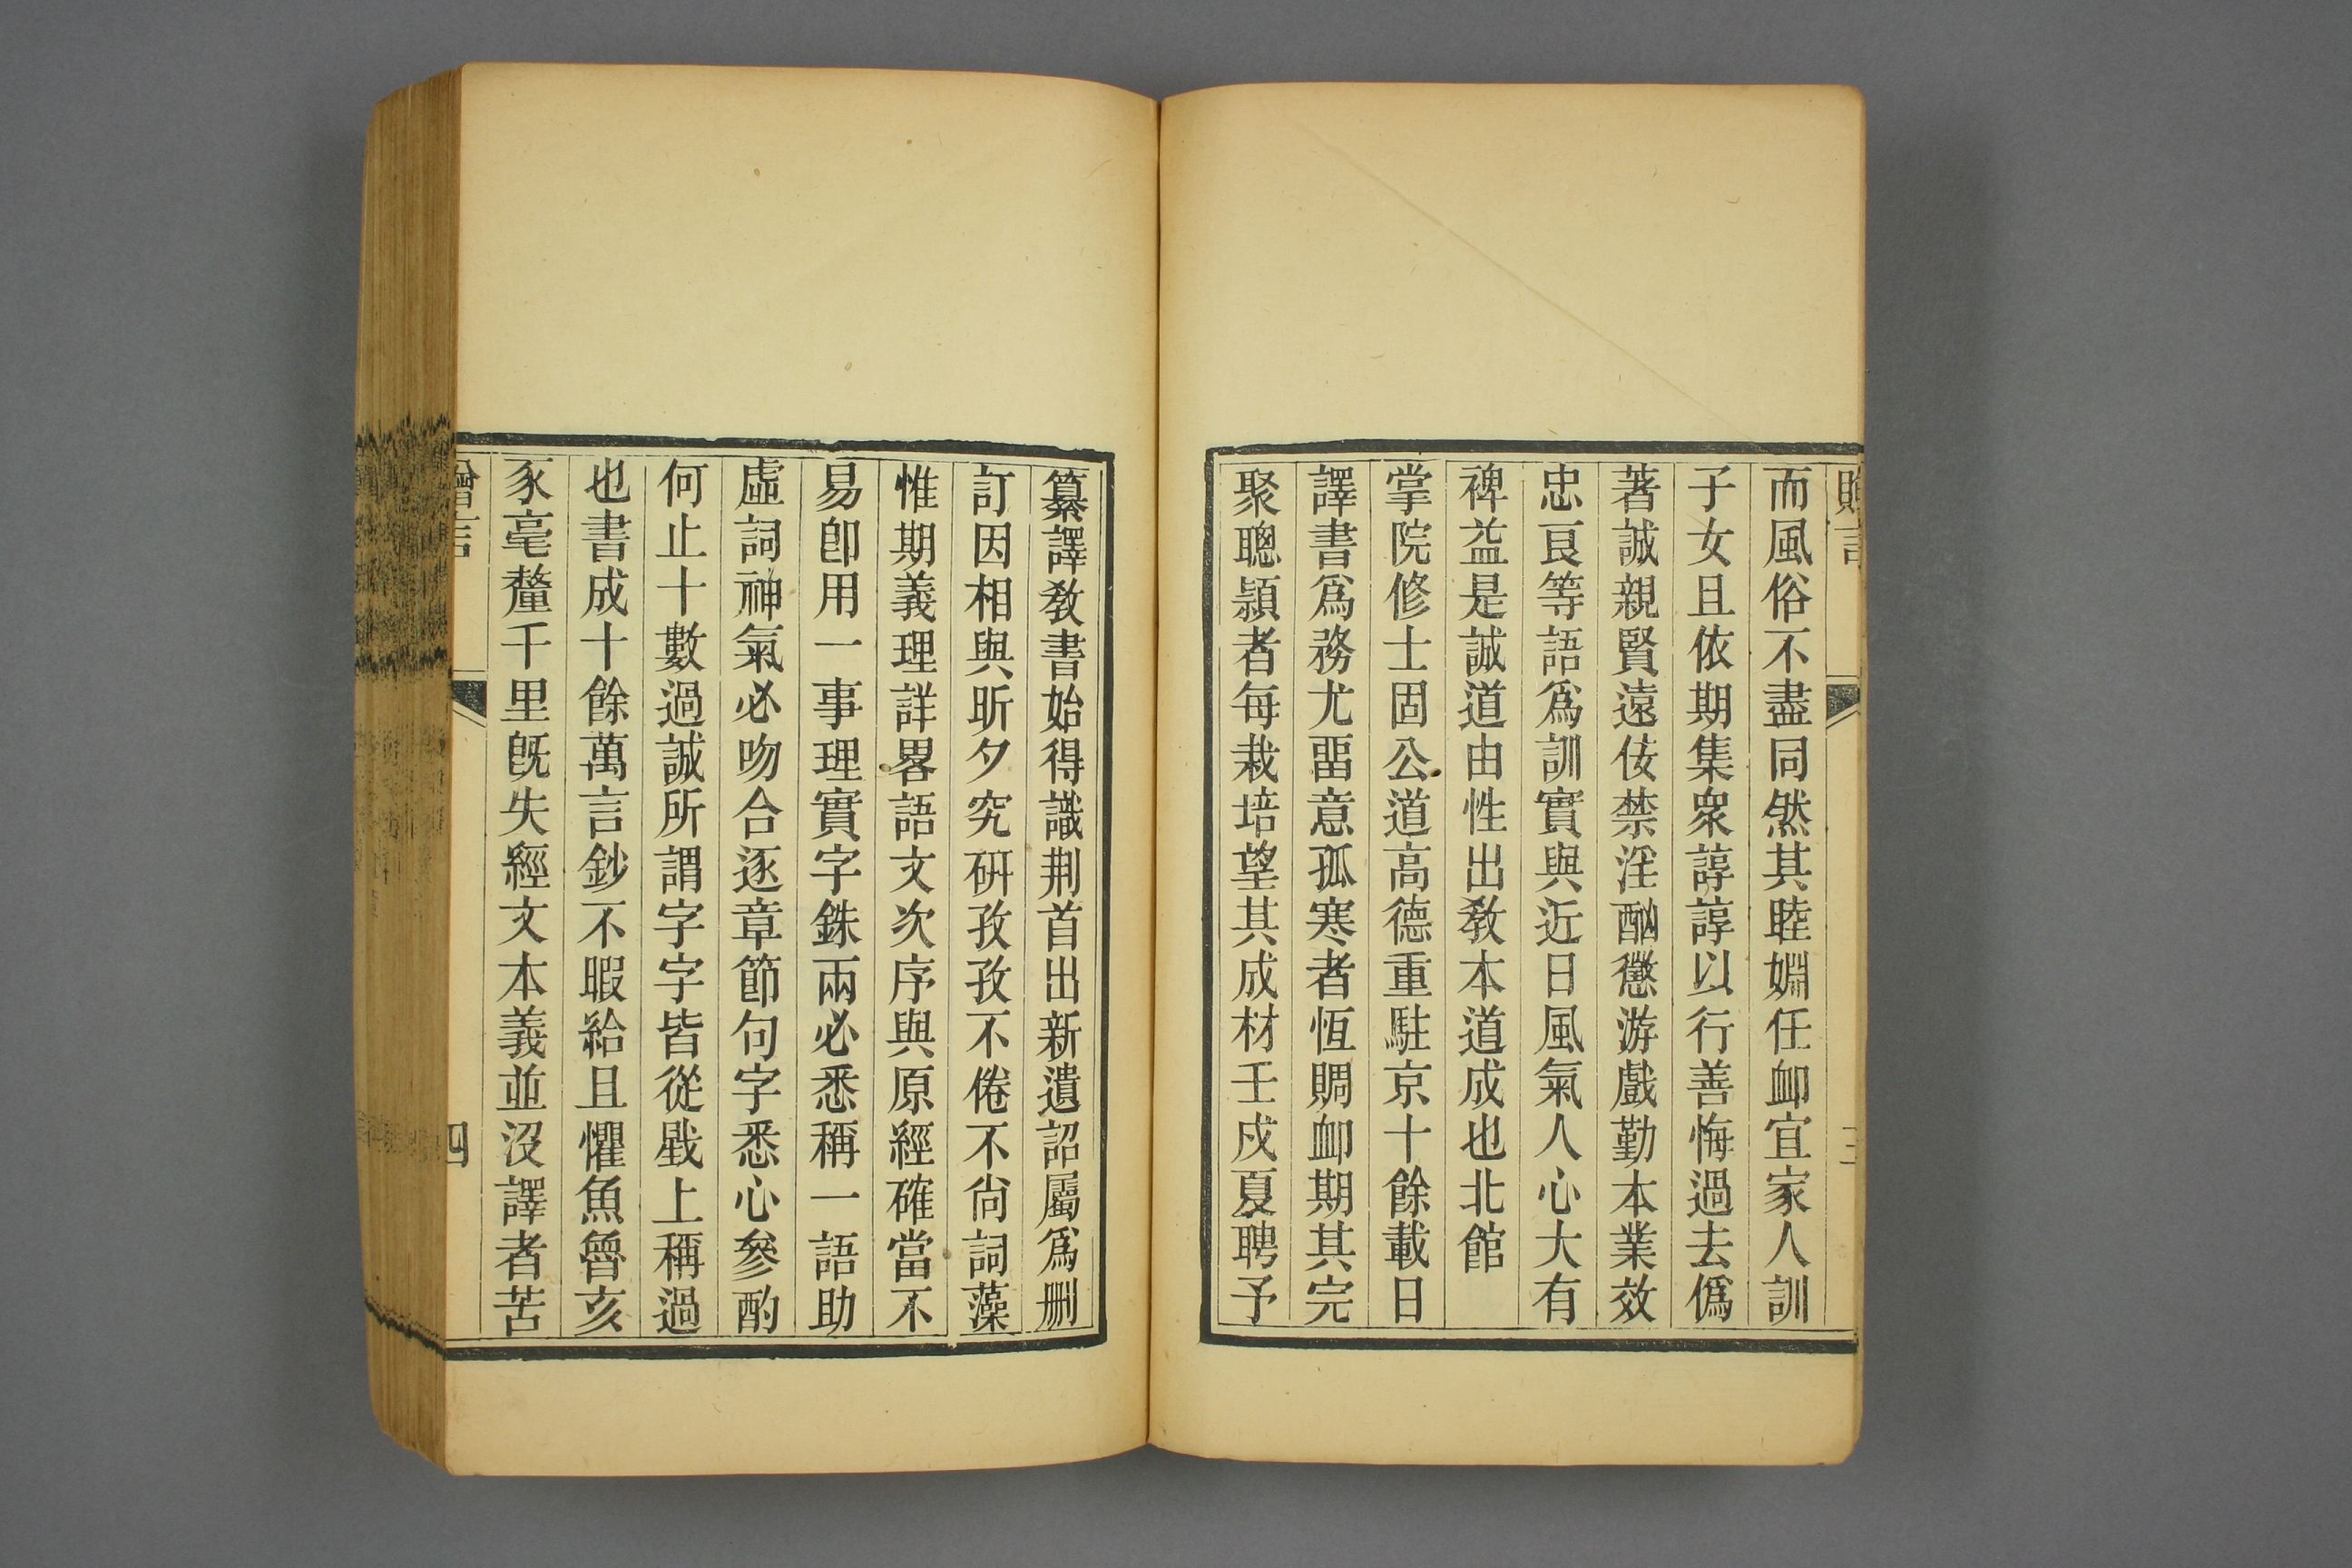 而風俗不盡同然其睦婣任卹宜家人訓
子女且依期集衆諄諄以行善悔過去僞
著誠親賢遠佞禁淫酗懲游戲勤本業效
忠良等語爲訓實與近日風氣人心大有
裨益是誠道由性出敎本道成也北館
掌院修士固公道高德重駐京十餘載日
譯書爲務尤畱意孤寒者恆賙卹期其完
聚聰頴者每栽培望其成材壬戌夏聘予
纂譯敎書始得識荆首出新遺詔屬爲刪
訂因相與昕夕究硏孜孜不倦不尙詞藻
惟期義理詳畧語文次序與原經確當不
易卽用一事理實字銖兩必悉稱一語助
虛詞神氣必吻合逐章節句字悉心參酌
何止十數過誠所謂字字皆從戥上稱過
也書成十餘萬言鈔不暇給且懼魚魯亥
豕毫釐千里旣失經文本義並沒譯者苦
贈言
四